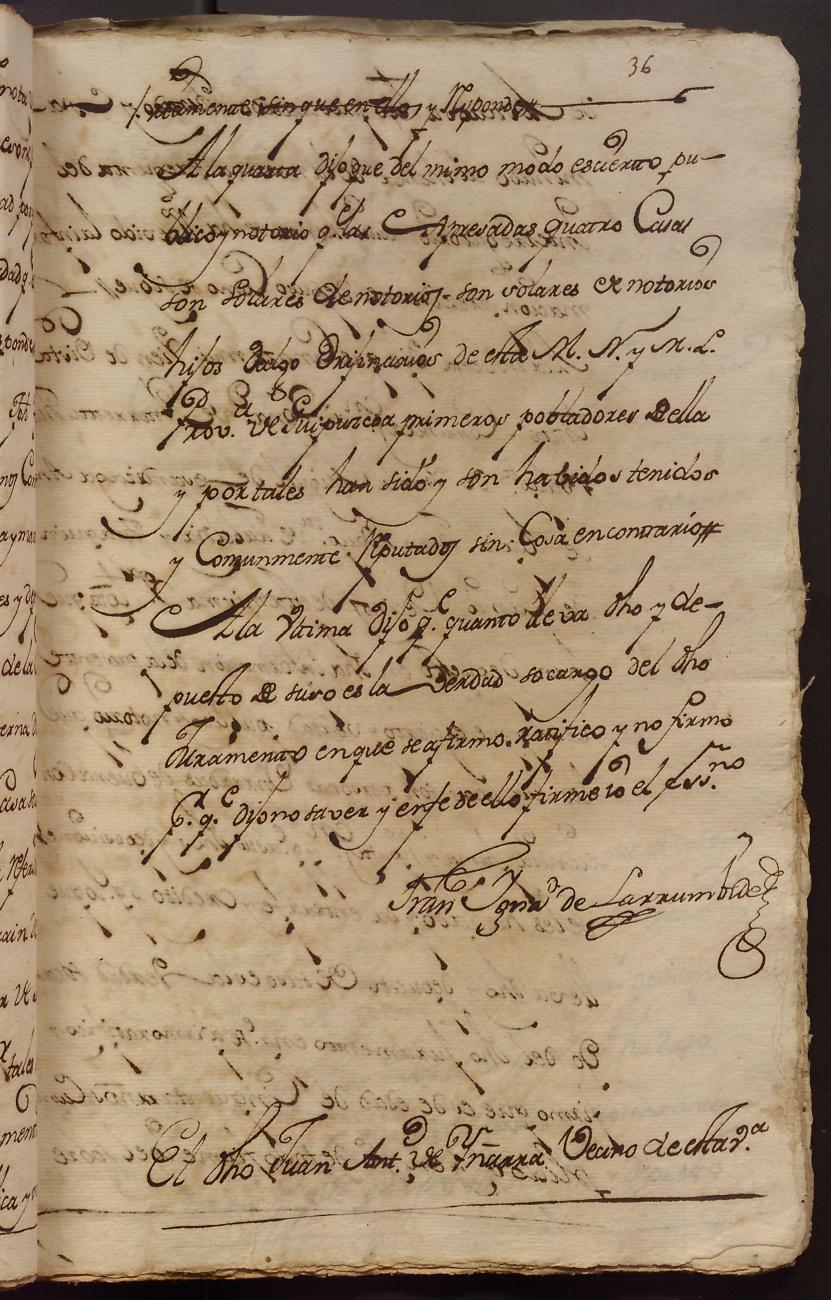 36
ridamente sin que en ello, y Responde
A la quarta dijo que del mimo modo es cierto, pu-
blico y notorio q.e las Expresadas quatro Casas
son solares de notorio, son solares de notorios
hijos dalgo Orijinarios de esta M. N. y M. L.
Prov.a de Guipuzcoa primeros pobladores de ella
y por tales han sido y son habidos tenidos
y Comunmente Reputados sin Cosa en contrario
A la Vltima dijo q.e quanto lleva dho y de-
puesto de suso es la Verdad so cargo del dho
Juramento en que se afirmo, ratifico y no firmo
p.r q.e dijo no saver y en fe de ello firme io el ess.no
Fran.co Ygna.o de Larrumbide
El dho Juan Ant.o de Yñarra Vecino de esta v.a